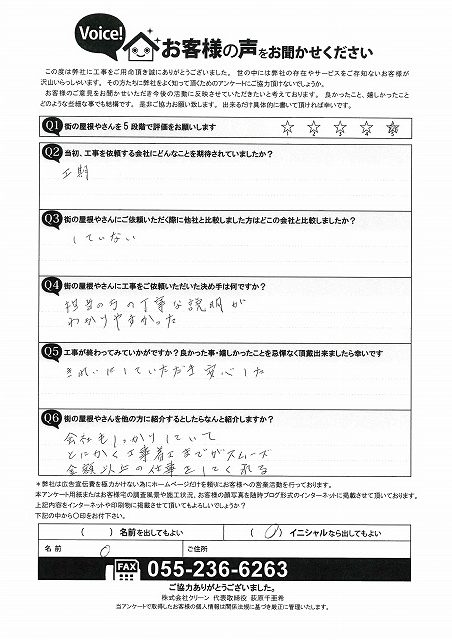 Voice!
お客様の声をお聞かせください
この度は弊社に工事をご用命頂き誠にありがとうございました。世の中には弊社の存在やサービスをご存知ないお客様が
沢山いらっしゃいます。その方たちに弊社をよく知って頂くためのアンケートにご協力頂けないでしょうか。
お客様のご意見をお聞かせいただき今後の活動に反映させていただきたいと考えております。良かったこと、嬉しかったこと
どのような些細な事でも結構です。是非ご協力お願い致します。出来るだけ具体的に書いて頂ければ幸いです。
Q1 街の屋根やさんを5段階で評価をお願いします ☆ ☆ ☆ ☆ ☆
Q2 当初、工事を依頼する会社にどんなことを期待されていましたか？
工期
Q3 街の屋根やさんにご依頼いただく際に他社と比較しました方はどこの会社と比較しましたか？
していない
Q4 街の屋根やさんに工事をご依頼いただいた決め手は何ですか？
担当の方の丁寧な説明が
わかりやすかった
Q5 工事が終わってみていかがですか？良かった事・嬉しかったことを忌憚なく頂戴出来ましたら幸いです
きれいにしていただき安心した
Q6 街の屋根やさんを他の方に紹介するとしたらなんと紹介しますか？
会社もしっかりしていて
とにかく工事着工までがスムーズ
金額以上の仕事をしてくれる
＊弊社は広告宣伝費を極力かけない為にホームページだけを頼りにお客様への営業活動を行っております。
本アンケート用紙またはお客様宅の調査風景や施工状況、お客様の顔写真を随時ブログ形式のインターネットに掲載させて頂いております。
上記内容をインターネットや印刷物に掲載させて頂いてもよろしいでしょうか？
下記の中から〇印をお付下さい。
（　　）名前を出してもよい　（ 〇 ）イニシャルなら出してもよい
名前　O　ご住所
FAX 055-236-6263
ご協力ありがとうございました。
株式会社クリーン 代表取締役 荻原千亜希
当アンケートで取得したお客様の個人情報は関係法規に基づき厳正に管理いたします。